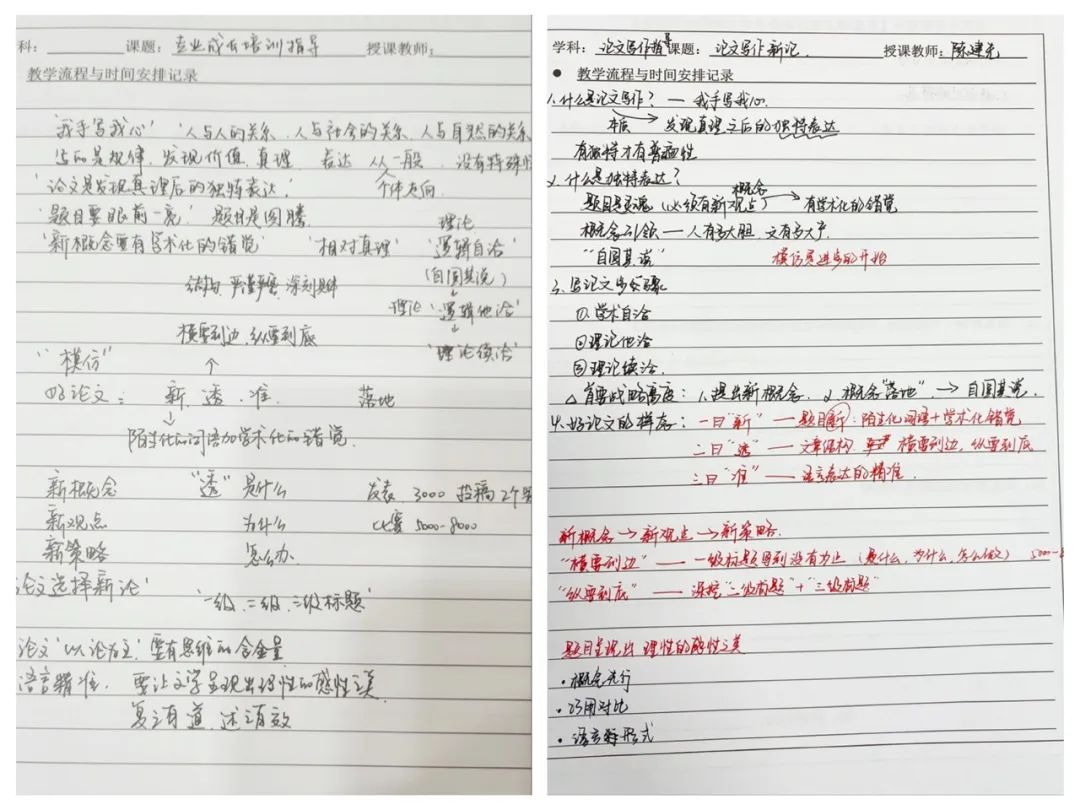 科： 课题：专业成长培训指导 授课教师：
教学流程与时间安排记录
"我手写我心" "人与人的关系、人与社会的关系、人与自然的关系
规律，发现价值，真理 表达 从一般 没有特殊
"论文是发现真理后的独特表达" 个体走向
"题目要眼前一亮" 题目是图腾 理论
"新概念要有学术化的错觉" "相对真理" "逻辑自洽"
（自圆其说）
结构 严谨 深刻 理论"逻辑他洽"
横要到边，纵要到底
"模仿" ↑ "理论续洽"
好论文： 新 透 准 落地
陌生化的词语加学术化的错觉
新概念 "透" 是什么 发表 3000 投稿 2个
新观点 为什么 比赛 5000-8000
新策略 怎么办
论文选择新论"
"一级、二级、三级标题"
论文"以论为主"要有思维的含金量
语言精准 要让文字呈现出理性的感性之美
复之有道 述之有效
学科：论文写作指导 课题：论文写作新论 授课教师：陈建先
● 教学流程与时间安排记录
1.什么是论文写作？— 我手写我心
本质 发现真理之后的独特表达
有独特才有普遍性
2.什么是独特表达？
题目是灵魂（必须有新观点）概念 → 有学术化的错觉
概念引领 — 人有多大胆，文有多大产
"自圆其说" 模仿是进步的开始
3.写论文步骤
①学术自洽
②理论他洽
③理论续洽
△首要战略高度：1.提出新概念 2.概念"落地" → 自圆其说
4.好论文的样态：一曰"新" — 题目新：陌生化词语+学术化错觉
二曰"透" — 文章结构 横要到边，纵要到底
三曰"准" — 语言表达的精准
新概念 → 新观点 → 新策略
"横要到边" — 一级标题写到没有为止（是什么，为什么，怎么做） 5000-8
"纵要到底" — 深挖"二级标题"+"三级标题"
题目呈现出 理性的感性之美
·概念先行
·巧用对比
·语言新形式